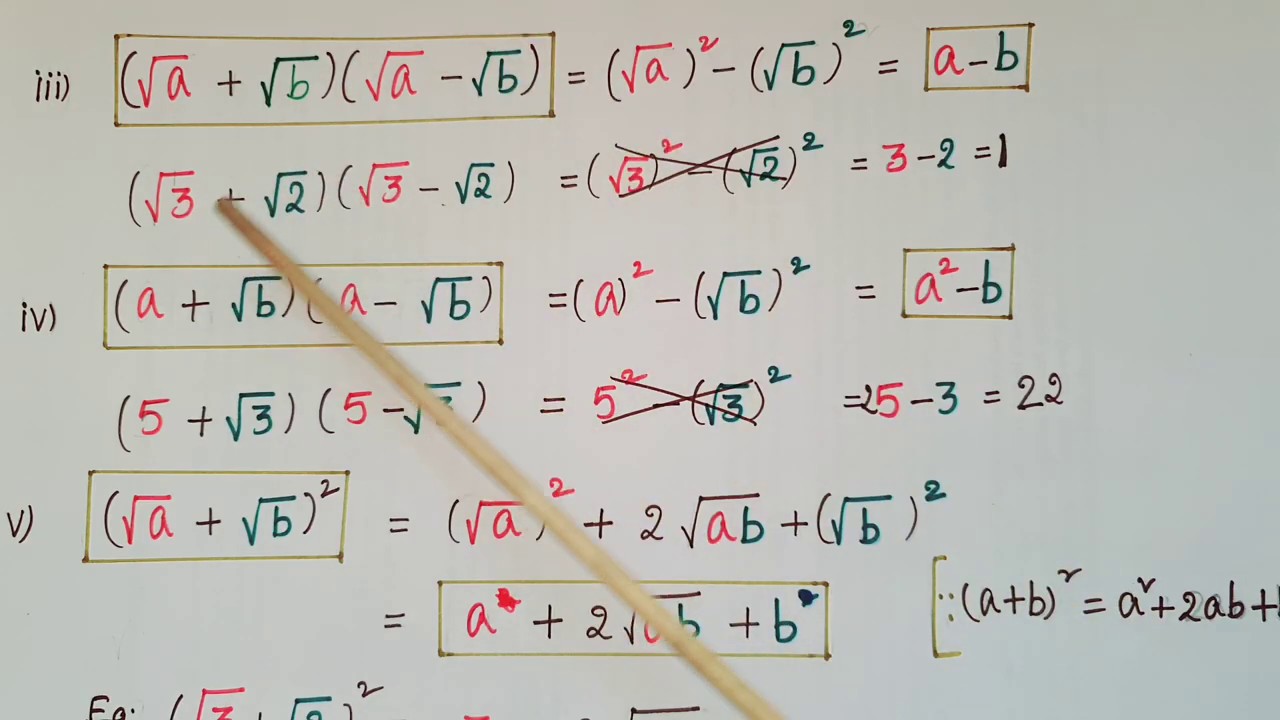 iii) (√a + √b)(√a - √b) = (√a)² - (√b)² = a - b
(√3 + √2)(√3 - √2) = (√3)² - (√2)² = 3 - 2 = 1
iv) (a + √b)(a - √b) = (a)² - (√b)² = a² - b
(5 + √3)(5 - √3) = 5² - (√3)² = 25 - 3 = 22
v) (√a + √b)² = (√a)² + 2√ab + (√b)²
= a + 2√ab + b
[∵ (a+b)² = a² + 2ab +
Eg: (√3 + √2)²